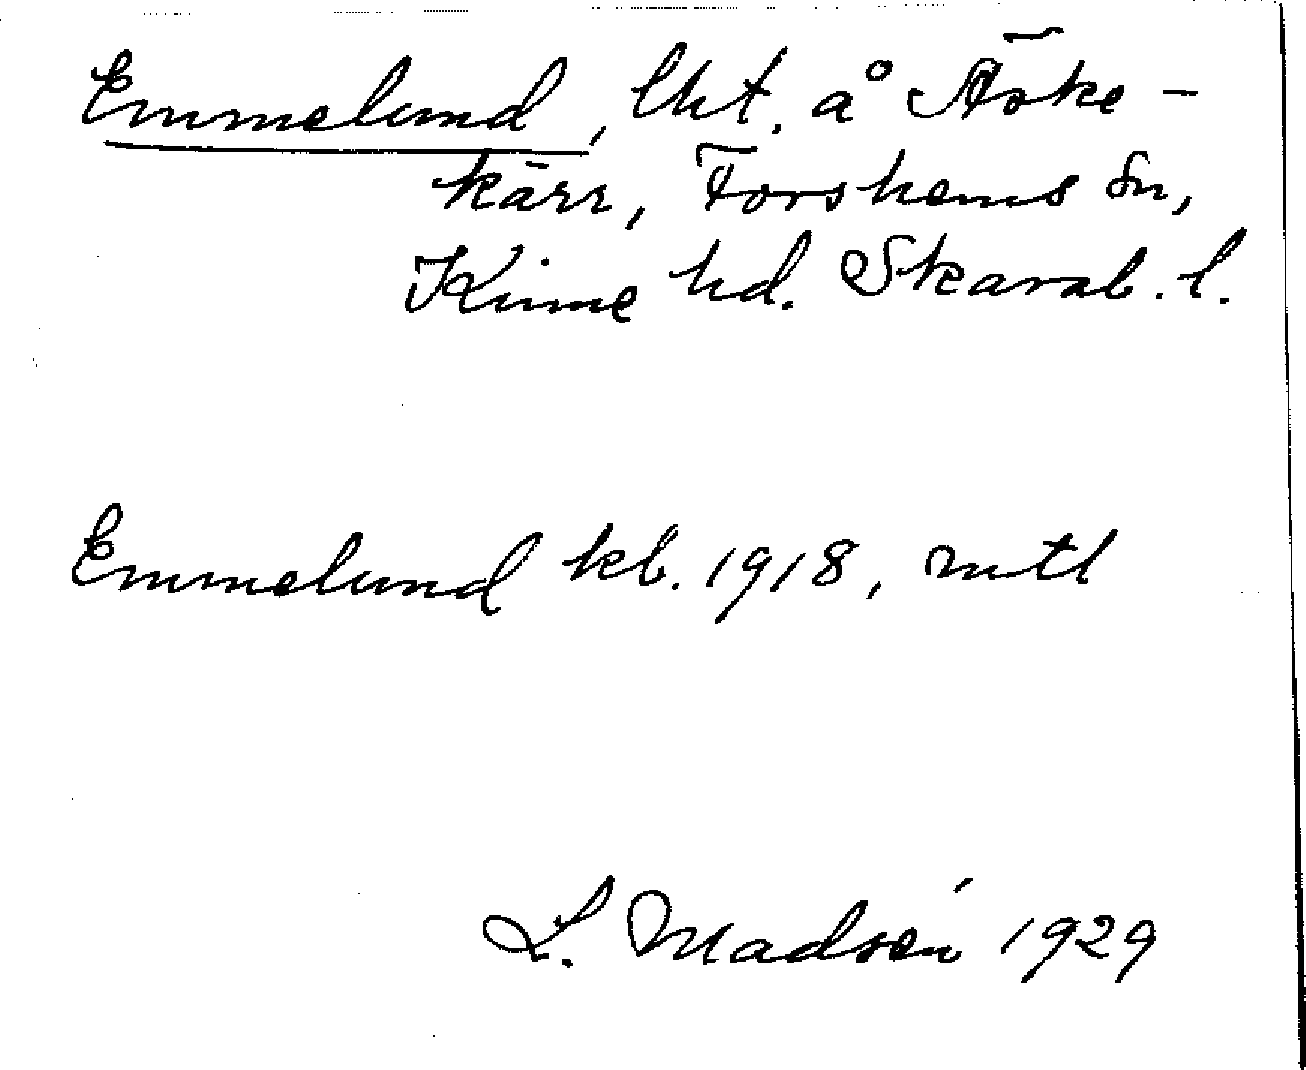 Emmelund, lht. å Äske-
kärr, Forshems sn,
Kinne hd. Skarab. l.
Emmelund kb. 1918, mtl
L. Madsén 1929